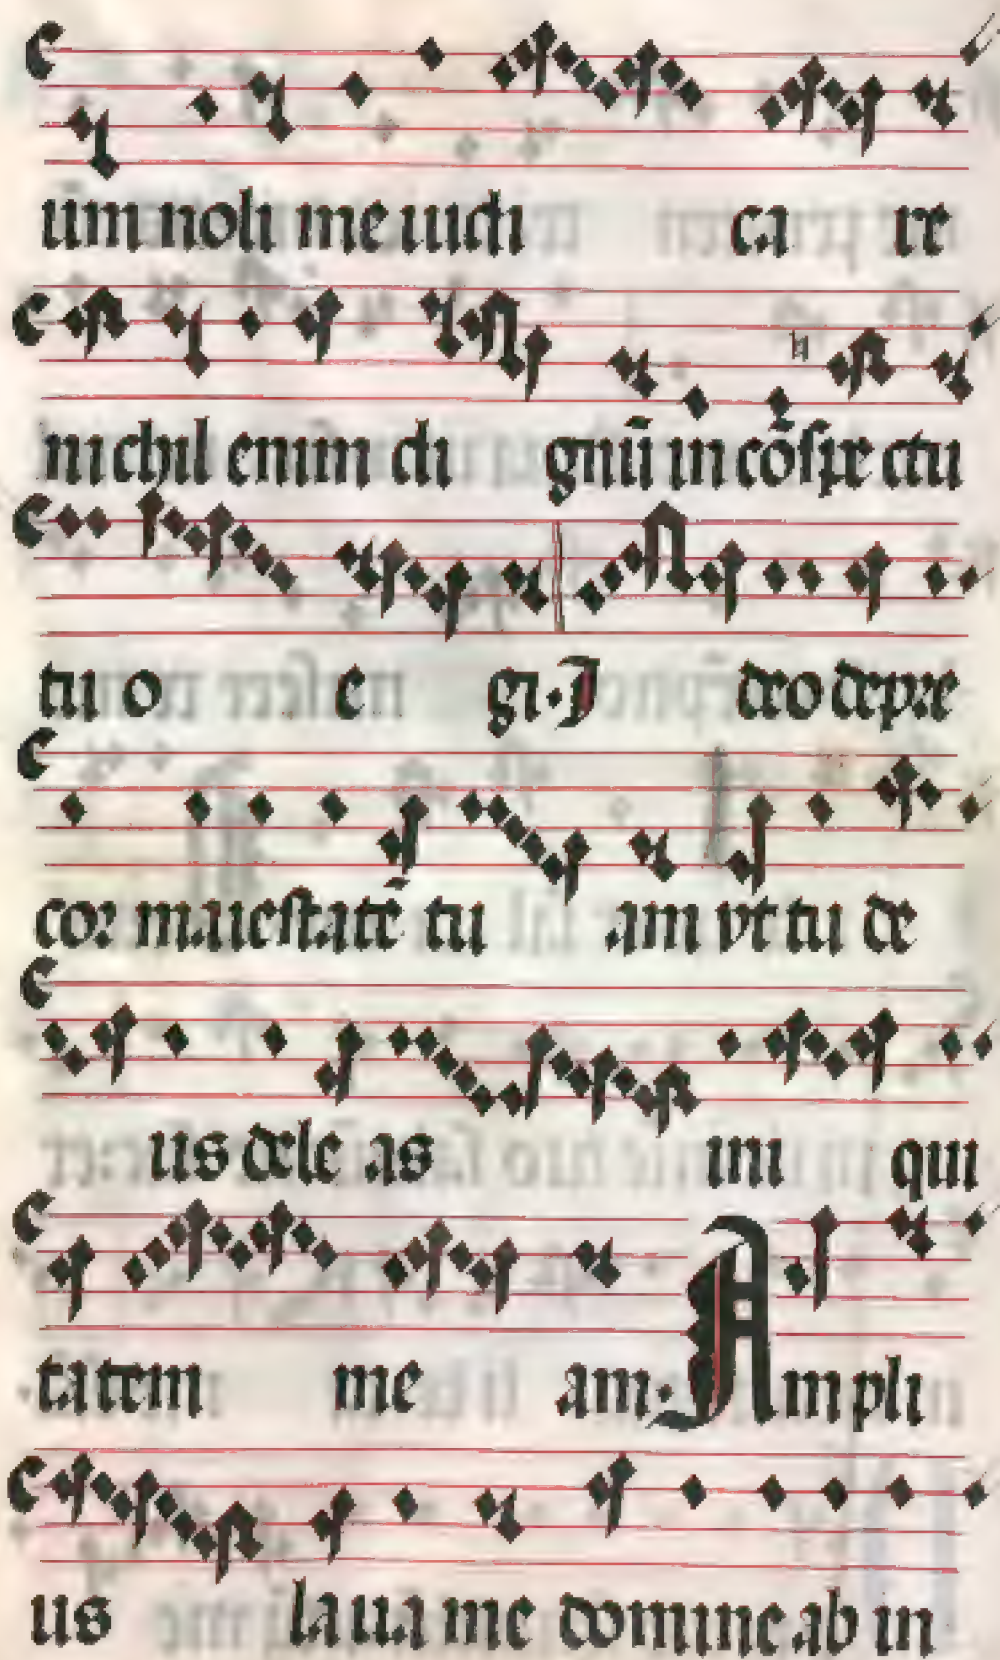 ūm noli me iudi ca re
nichil enim di gnū in cōspe ctu
tu o e gi. I deo depre
cor maiestatē tu am vt tu de
us dele as ini qui
tatem me am. Ampli
us laua me domine ab in